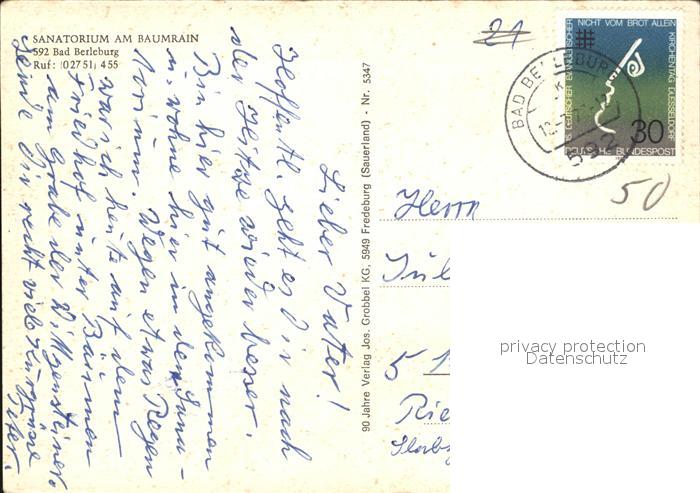 SANATORIUM AM BAUMRAIN
592 Bad Berleburg
Ruf: (02751) 455
Lieber Vater!
Hoffentl. geht es Dir nach
der Hitze wieder besser.
Bin hier gut angekommen
u. wohne hier in dem Sana-
torium. Wegen etwas Regen
war ich heute auf dem
Friedhof unter Bäumen
am Grabe der Wittgensteiner.
Sende Dir recht viele Kurgrüsse
Peter.
90 Jahre Verlag Jos. Grobbel KG, 5949 Fredeburg (Sauerland) - Nr. 5347
21
15. DEUTSCHER EVANGELISCHER
NICHT VOM BROT ALLEIN
KIRCHENTAG DÜSSELDORF
30
DEUTSCHE BUNDESPOST
BAD BERLEBURG
592
50
Herrn
5
privacy protection
Datenschutz